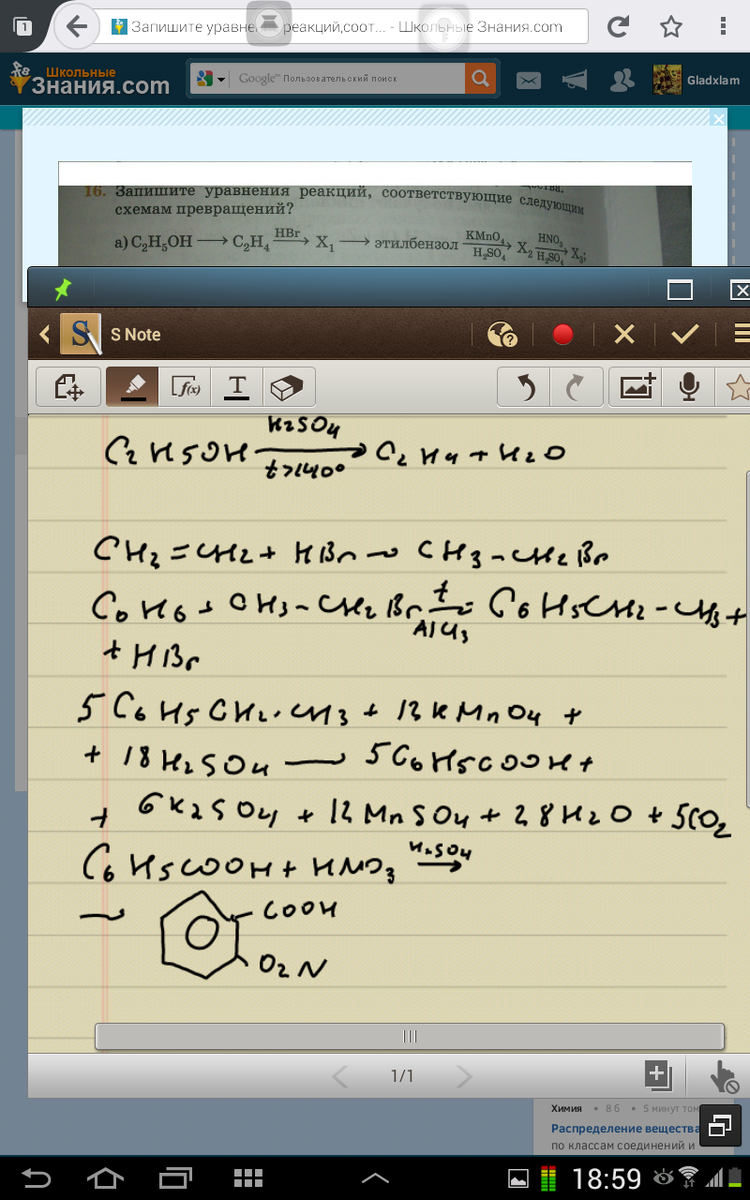 1
Запишите уравне реакций,соот... - Школьные Знания.com
Школьные
Знания.com
Google™ Пользовательский поиск
Gladxlam
16. Запишите уравнения реакций, соответствующие следующим
схемам превращений?
а) C₂H₅OH ⟶ C₂H₄ —HBr→ X₁ ⟶ этилбензол —KMnO₄/H₂SO₄→ X₂ —HNO₃/H₂SO₄→ X₃;
S Note
f(x)
T
C₂H5OH —H2SO4/t>140°→ C₂H4 + H2O
CH₂=CH2 + HBr → CH3-CH2Br
C6H6 + CH3-CH2Br —t/AlCl3→ C6H5CH2-CH3 +
+ HBr
5C6H5CH2-CH3 + 12KMnO4 +
+ 18H2SO4 — 5C6H5COOH +
+ 6K2SO4 + 12MnSO4 + 28H2O + 5CO2
C6H5COOH + HNO3 —H2SO4→
→ COOH
O2N
1/1
Химия • 8 б • 5 минут том
Распределение вещества
по классам соединений и
18:59